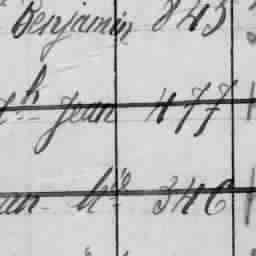 Benjamin 845
th Jean 477
an 346